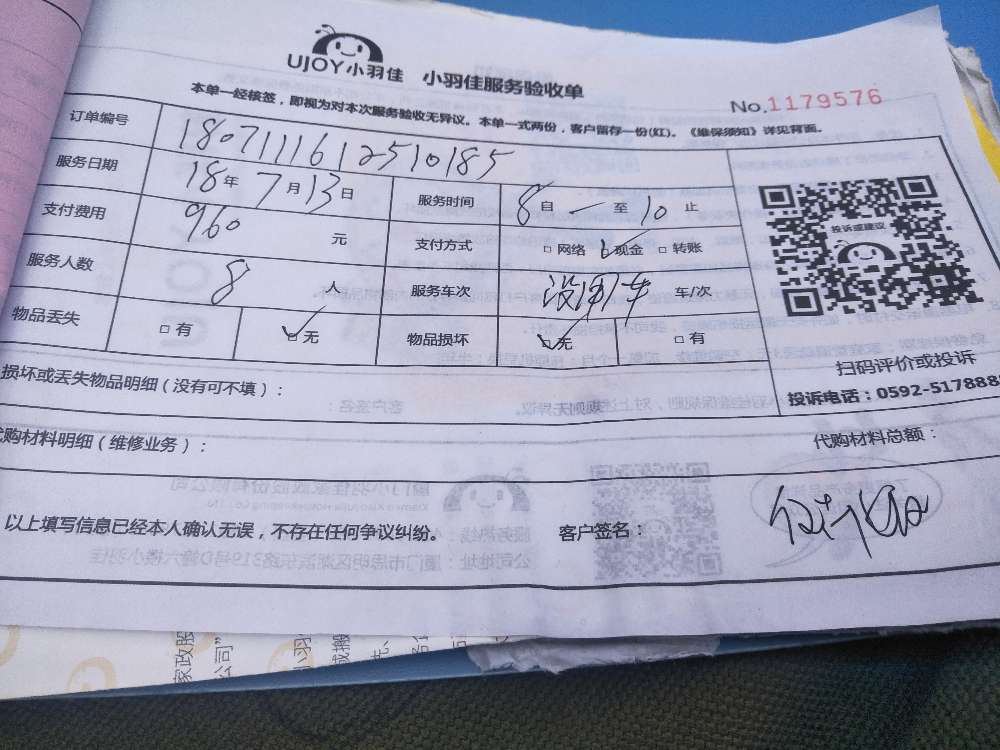 UJOY小羽佳 小羽佳服务验收单
No.1179576
本单一经核签，即视为对本次服务验收无异议。本单一式两份，客户留存一份(红)。《维保须知》详见背面。
订单编号 1807111612510185
服务日期 18年7月13日 服务时间 8自 至10止
支付费用 960元 支付方式 □网络 □现金 □转账
服务人数 8人 服务车次 没用车 车/次
物品丢失 □有 □无 物品损坏 □无 □有
投诉或建议
扫码评价或投诉
投诉电话：0592-517888
损坏或丢失物品明细（没有可不填）：
代购材料明细（维修业务）： 代购材料总额：
以上填写信息已经本人确认无误，不存在任何争议纠纷。 客户签名：